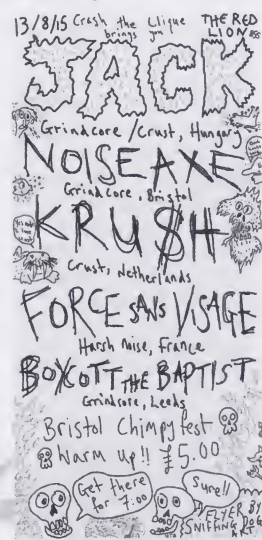 13/8/15 Crash the Clique brings you THE RED LION
JACK
Grindcore / Crust, Hungary
NOISE AXE
Grindcore, Bristol
KRU$H
Crust, Netherlands
FORCE SANS VISAGE
Harsh Noise, France
BOYCOTT THE BAPTIST
Grindcore, Leeds
Bristol Chimpyfest
Warm up!! £5.00
Get there for 7:00
Sure!!
FLYER BY SNIFFING DOG ART